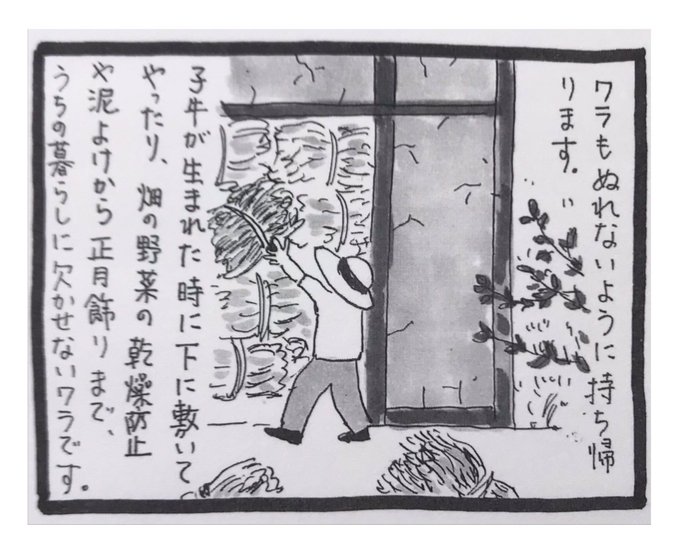 ワラもぬれないように持ち帰
ります。
子牛が生まれた時に下に敷いて
やったり、畑の野菜の乾燥防止
や泥よけから正月飾りまで、
うちの暮らしに欠かせないワラです。